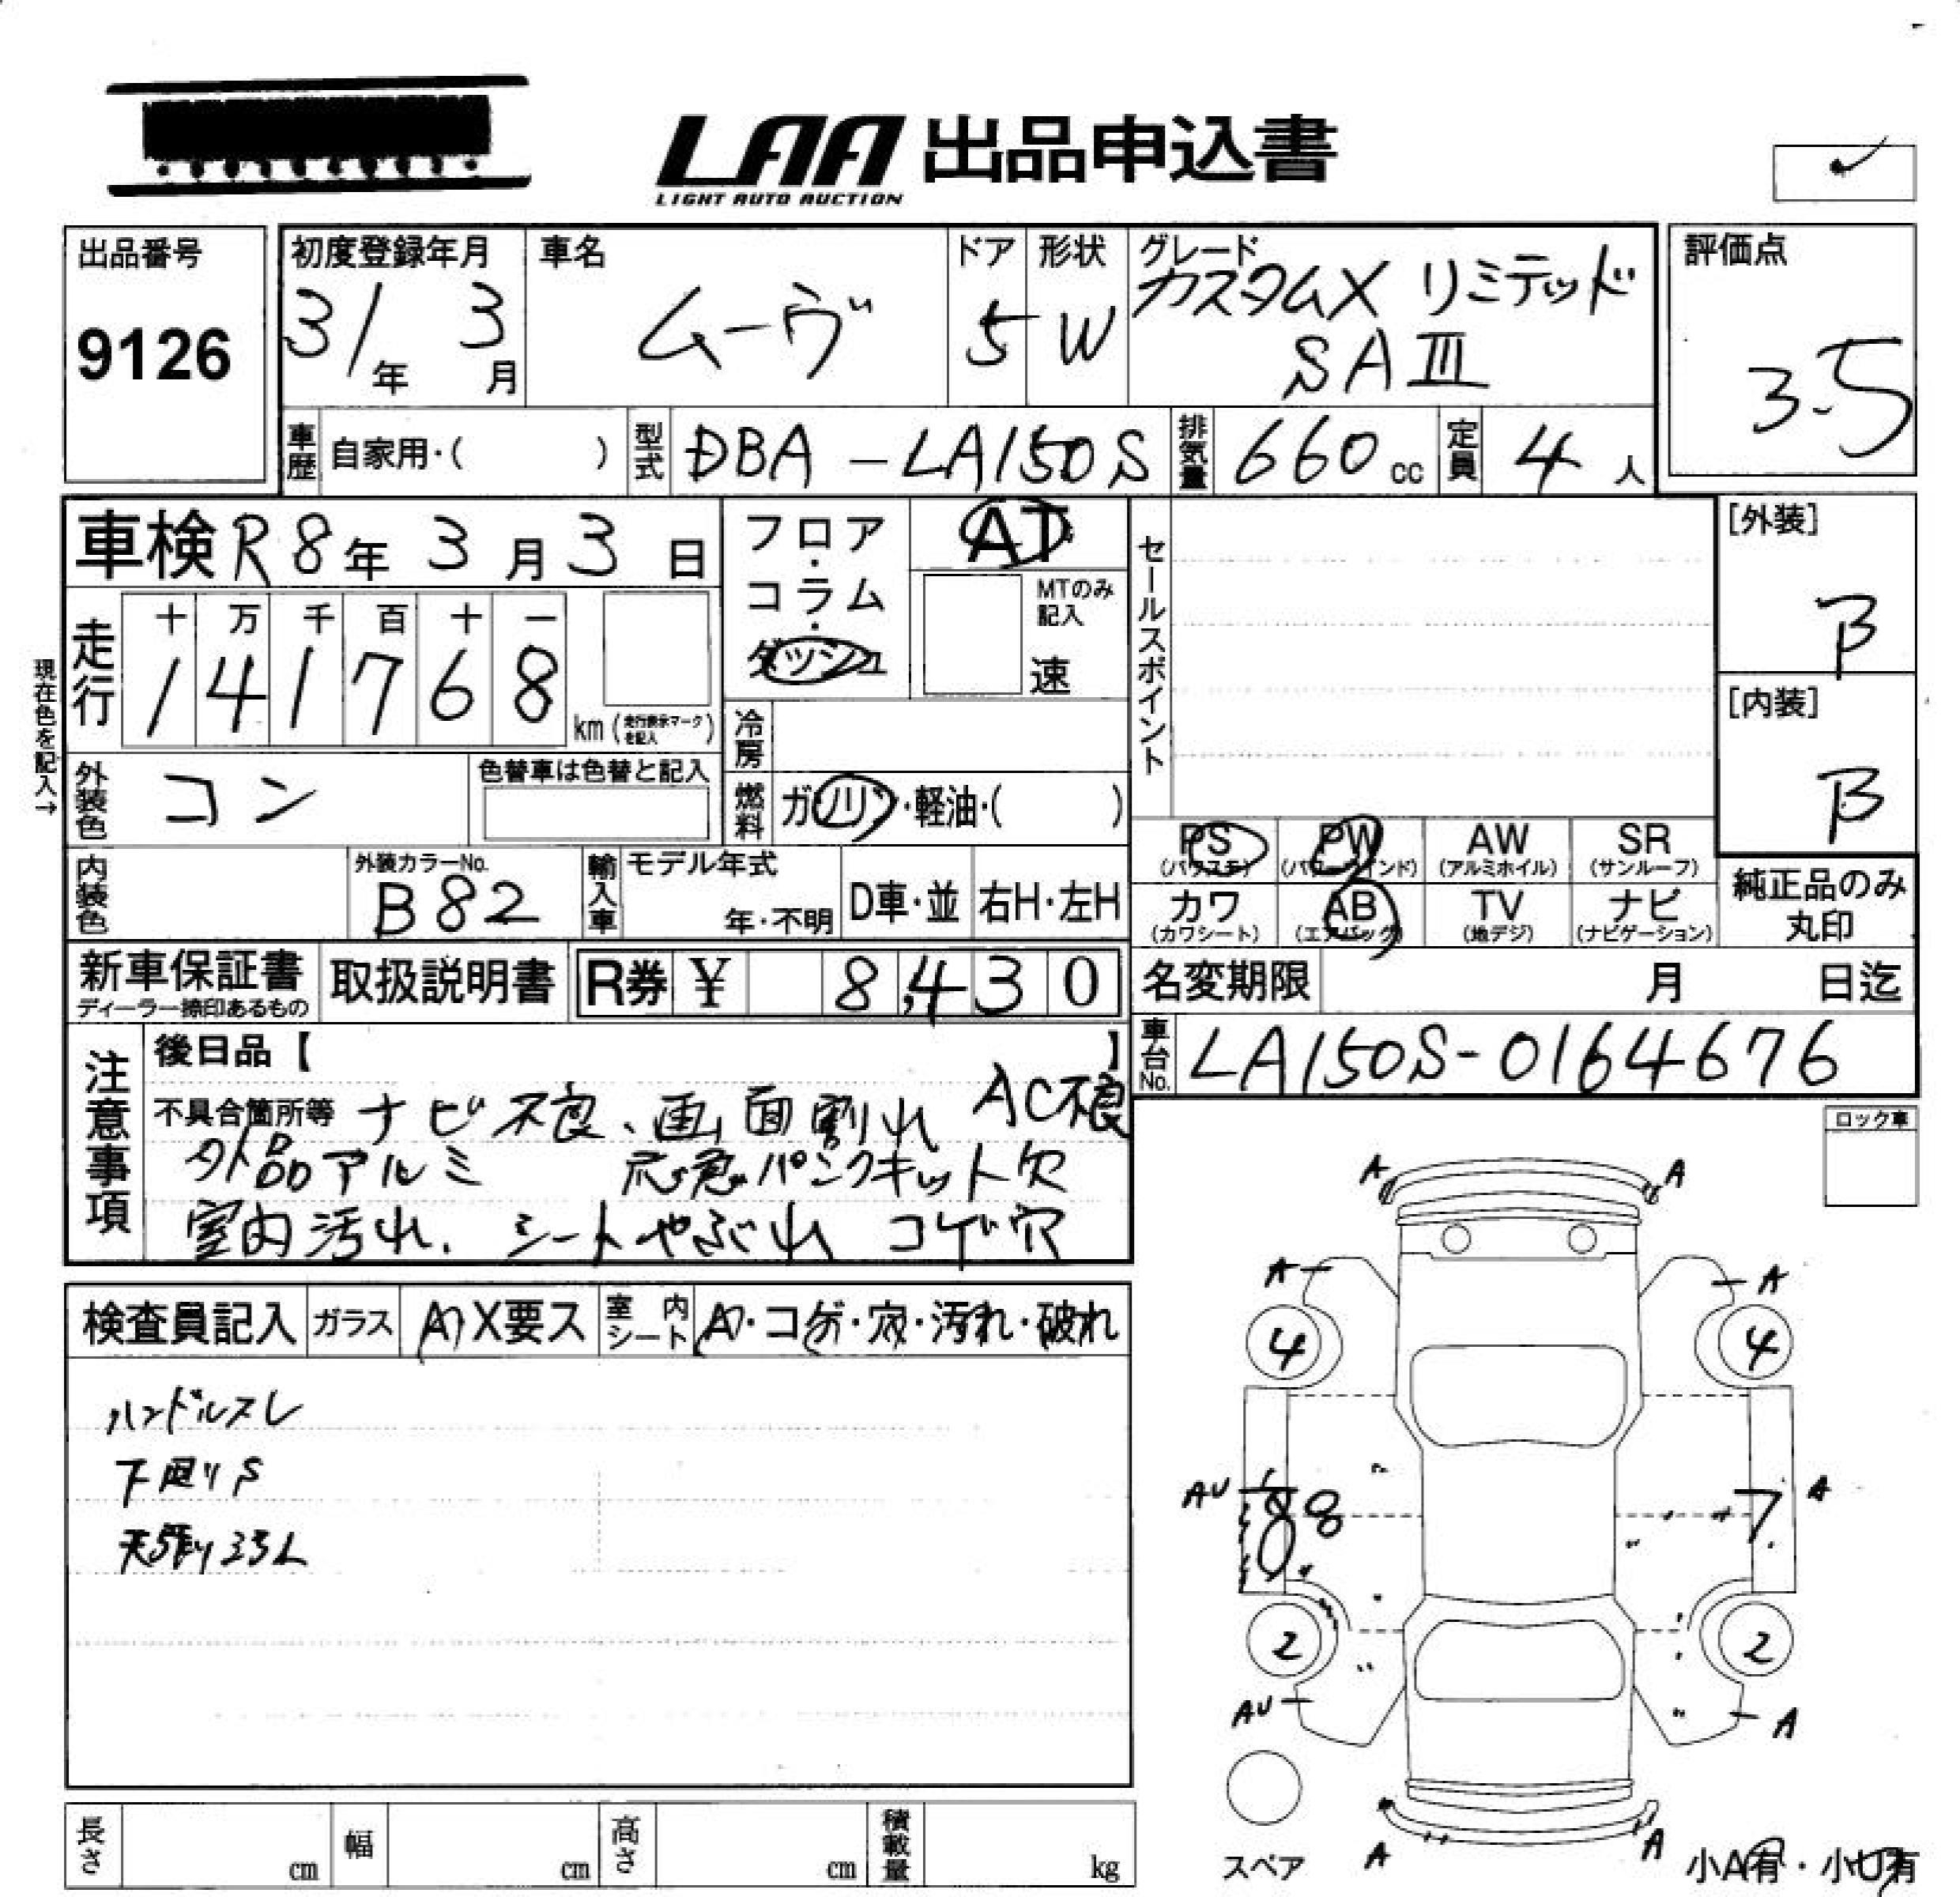 LAA 出品申込書
LIGHT AUTO AUCTION
出品番号
9126
初度登録年月
31年 3月
車名
ムーヴ
ドア
5
形状
W
グレード
カスタムX リミテッド
SAⅢ
評価点
3.5
車歴 自家用・( )
型式 DBA-LA150S
排気量 660 cc
定員 4 人
車検 R8年 3月 3日
フロア・コラム・ダッシュ
AT
MTのみ記入
速
セールスポイント
[外装]
B
[内装]
B
現在色を記入→
走行
十 万 千 百 十 一
1 4 1 7 6 8
km (走行表示マークを記入)
冷房
外装色 コン
色替車は色替と記入
燃料 ガソリン・軽油・( )
内装色
外装カラーNo.
B82
輸入車
モデル年式
年・不明
D車・並
右H・左H
PS (パワステ)
PW (パワーウインド)
AW (アルミホイル)
SR (サンルーフ)
カワ (カワシート)
AB (エアバッグ)
TV (地デジ)
ナビ (ナビゲーション)
純正品のみ丸印
新車保証書
ディーラー捺印あるもの
取扱説明書
R券 ¥ 8,430
名変期限 月 日迄
車台No. LA150S-0164676
注意事項
後日品【 】
不具合箇所等 ナビ不良、画面割れ AC不良
外品アルミ 応急パンクキット欠
室内汚れ、シートやぶれ コゲ穴
ロック車
検査員記入
ガラス A・X要ス
室内シート A・コゲ・穴・汚れ・破れ
ハンドルスレ
下廻りS
A A
A A
4 4
AU 8 7 A
2 2
AU A
A A
スペア
小A有・小U有
長さ cm
幅 cm
高さ cm
積載量 kg